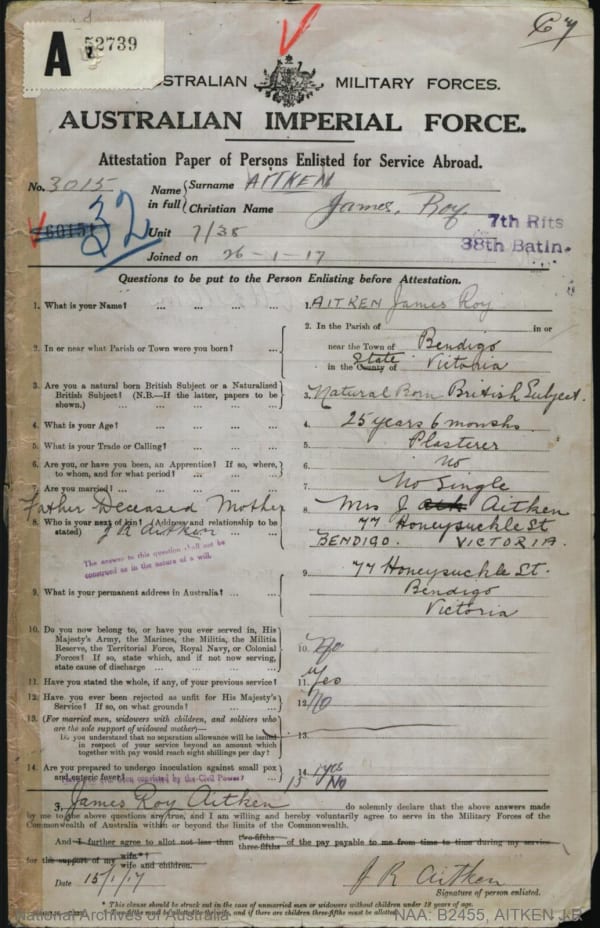 A 52739
AUSTRALIAN MILITARY FORCES.
AUSTRALIAN IMPERIAL FORCE.
Attestation Paper of Persons Enlisted for Service Abroad.
No. 3015 Name in full { Surname AITKEN
Christian Name James, Roy.
60151 32 Unit 7/38 7th Rfts
38th Batln.
Joined on 26-1-17
Questions to be put to the Person Enlisting before Attestation.
1. What is your Name? ... ... ... ... 1. AITKEN James Roy
2. In or near what Parish or Town were you born? ... 2. In the Parish of in or
near the Town of Bendigo
in the County of State Victoria
3. Are you a natural born British Subject or a Naturalized
British Subject? (N.B.—If the latter, papers to be
shown.) ... ... ... ... 3. Natural Born British Subject.
4. What is your Age? ... ... ... ... 4. 25 years 6 months.
5. What is your Trade or Calling? ... ... ... 5. Plasterer
6. Are you, or have you been, an Apprentice? If so, where,
to whom, and for what period? ... ... ... 6. no
7. Are you married? ... ... ... ... 7. No Single
Father Deceased Mother
8. Who is your next of kin? (Address and relationship to be
stated) J R Aitken ... ... 8. Mrs J Aitken
77 Honeysuckle St
BENDIGO. VICTORIA.
The answer to this question shall not be
construed as in the nature of a will.
9. What is your permanent address in Australia? ... ... 9. 77 Honeysuckle St.
Bendigo
Victoria
10. Do you now belong to, or have you ever served in, His
Majesty's Army, the Marines, the Militia, the Militia
Reserve, the Territorial Force, Royal Navy, or Colonial
Forces? If so, state which, and if not now serving,
state cause of discharge ... ... ... 10. No
11. Have you stated the whole, if any, of your previous service? 11. Yes
12. Have you ever been rejected as unfit for His Majesty's
Service? If so, on what grounds? ... ... ... 12. No
13. (For married men, widowers with children, and soldiers who
are the sole support of widowed mother)—
Do you understand that no separation allowance will be issued
in respect of your service beyond an amount which
together with pay would reach eight shillings per day? 13.
14. Are you prepared to undergo inoculation against small pox
and enteric fever? 14. yes
been convicted by the Civil Power? 15 No
I, James Roy Aitken do solemnly declare that the above answers made
by me to the above questions are true, and I am willing and hereby voluntarily agree to serve in the Military Forces of the
Commonwealth of Australia within or beyond the limits of the Commonwealth.
And I further agree to allot not less than two-fifths three-fifths of the pay payable to me from time to time during my service
for the support of my wife* wife and children.
Date 15/1/17 J R Aitken
Signature of person enlisted.
* This clause should be struck out in the case of unmarried men or widowers without children under 18 years of age.
Two-fifths must be allotted to the wife, and if there are children three-fifths must be allotted.
National Archives of Australia NAA: B2455, AITKEN J R